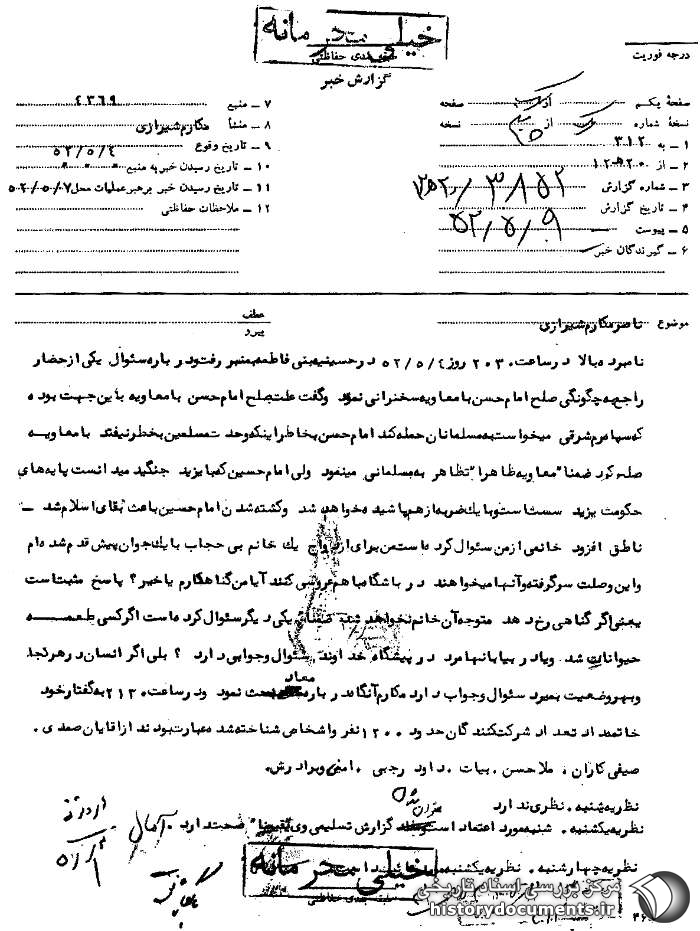 خیلی محرمانه
طبقه بندی حفاظتی
گزارش خبر
درجه فوریت
صفحهٔ یکم از صفحه
نسخهٔ شماره از نسخه
۱ ـ به ۳۱۲
۲ ـ از ۱۲ ه ۲۰
۳ ـ شماره گزارش
۴ ـ تاریخ گزارش ۵۲/۵/۹
۵ ـ پیوست
۶ ـ گیرندگان خبر
۷ ـ منبع ۴۳۶۹
۸ ـ منشأ مکارم شیرازی
۹ ـ تاریخ وقوع ۵۲/۵/۴
۱۰ ـ تاریخ رسیدن خبر به منبع
۱۱ ـ تاریخ رسیدن خبر برهبر عملیات محل ۵۲/۵/۷
۱۲ ـ ملاحظات حفاظتی
موضوع ناصر مکارم شیرازی
عطف
پیرو
نامبرده بالا در ساعت ۲۰۳۰ روز ۵۲/۵/۴ در حسینیه بنی فاطمه بمنبر رفت و در باره سئوال یکی از حضار
راجع به چگونگی صلح امام حسن با معاویه سخنرانی نمود و گفت علت صلح امام حسن با معاویه باین جهت بوده
که سپاه رم شرقی میخواست به مسلمانان حمله کند امام حسن بخاطر اینکه وحدت مسلمین بخطر نیفتد با معاویه
صلح کرد ضمنا" معاویه ظاهرا" تظاهر به مسلمانی مینمود ولی امام حسین که با یزید جنگید میدانست پایه های
حکومت یزید سست است و با یك ضربه از هم پاشیده خواهد شد و کشته شدن امام حسین باعث بقای اسلام شد ـ
ناطق افزود خانمی از من سئوال کرده است من برای ازدواج یك خانم بی حجاب با یك جوان پیش قدم شده ام
و این وصلت سر گرفته و آنها میخواهند در باشگاه با هم عروسی کنند آیا من گناهکارم یا خیر؟ پاسخ مثبت است
یعنی اگر گناهی رخ دهد متوجه آن خانم نخواهد شد ضمنا" یکی دیگر سئوال کرده است اگر کسی طعمه
حیوانات شد و یا در بیابانها مرد در پیشگاه خداوند سئوال و جوابی دارد ؟ بلی اگر انسان در هر کجا
و بهر وضعیت بمیرد سئوال و جواب دارد مکارم آنگاه در باره معاد بحث نمود و در ساعت ۲۱۳۰ به گفتار خود
خاتمه داد تعداد شرکت کنندگان حدود ۱۲۰۰ نفر و اشخاص شناخته شده عبارت بودند از آقایان صمدی .
صیفی کاران . ملا حسن . بیات . داود رجبی . امنی و برادرش.
نظریه شنبه . نظری ندارد
نظریه یکشنبه . شنبه مورد اعتماد است گزارش تسلیمی وی صحت دارد .
نظریه چهارشنبه . نظریه یکشنبه
خیلی محرمانه
طبقه بندی حفاظتی
مرکز بررسی اسناد تاریخی
historydocuments.ir